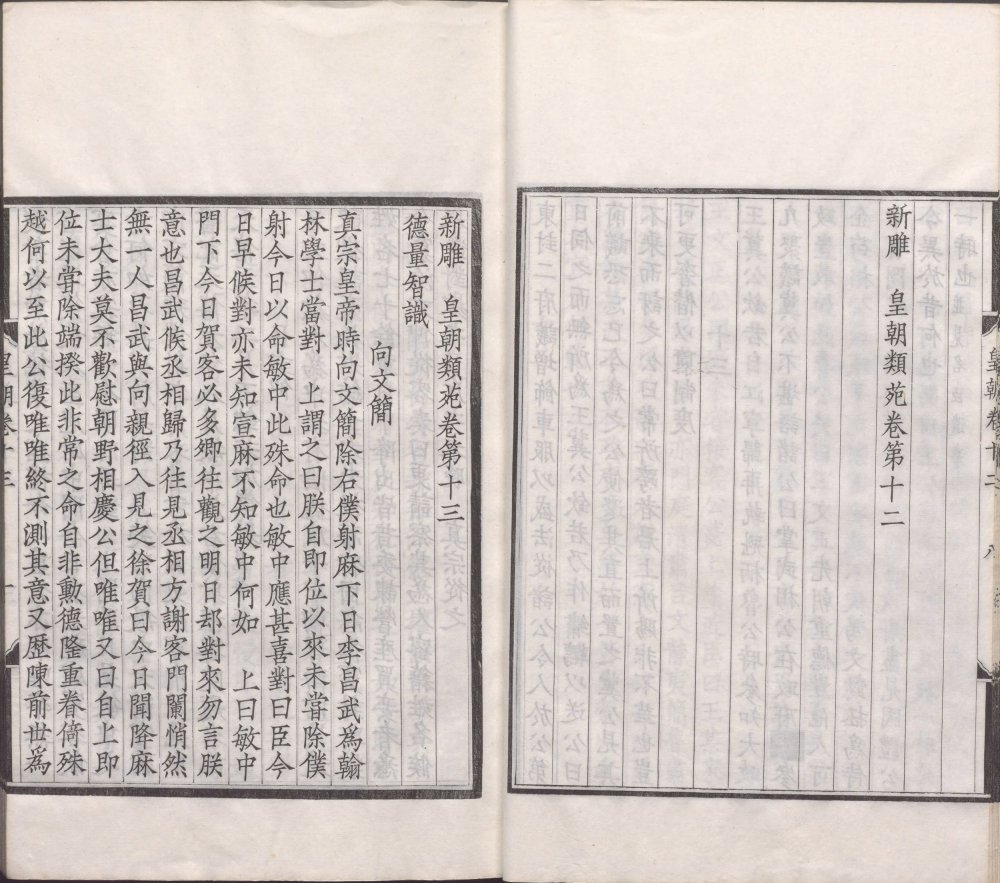 皇朝卷十二
八
新雕　皇朝類苑卷第十二
新雕　皇朝類苑卷第十三
德量智識
向文簡
真宗皇帝時向文簡除右僕射麻下日李昌武爲翰
林學士當對　上謂之曰朕自即位以來未甞除僕
射今日以命敏中此殊命也敏中應甚喜對曰臣今
日早候對亦未知宣麻不知敏中何如　上曰敏中
門下今日賀客必多卿往觀之明日却對來勿言朕
意也昌武候丞相歸乃往見丞相方謝客門闌悄然
無一人昌武與向親徑入見之徐賀曰今日聞降麻
士大夫莫不歡慰朝野相慶公但唯唯又曰自上即
位未甞除端揆此非常之命自非勳德隆重眷倚殊
越何以至此公復唯唯終不測其意又歷陳前世爲
皇朝卷十三
一